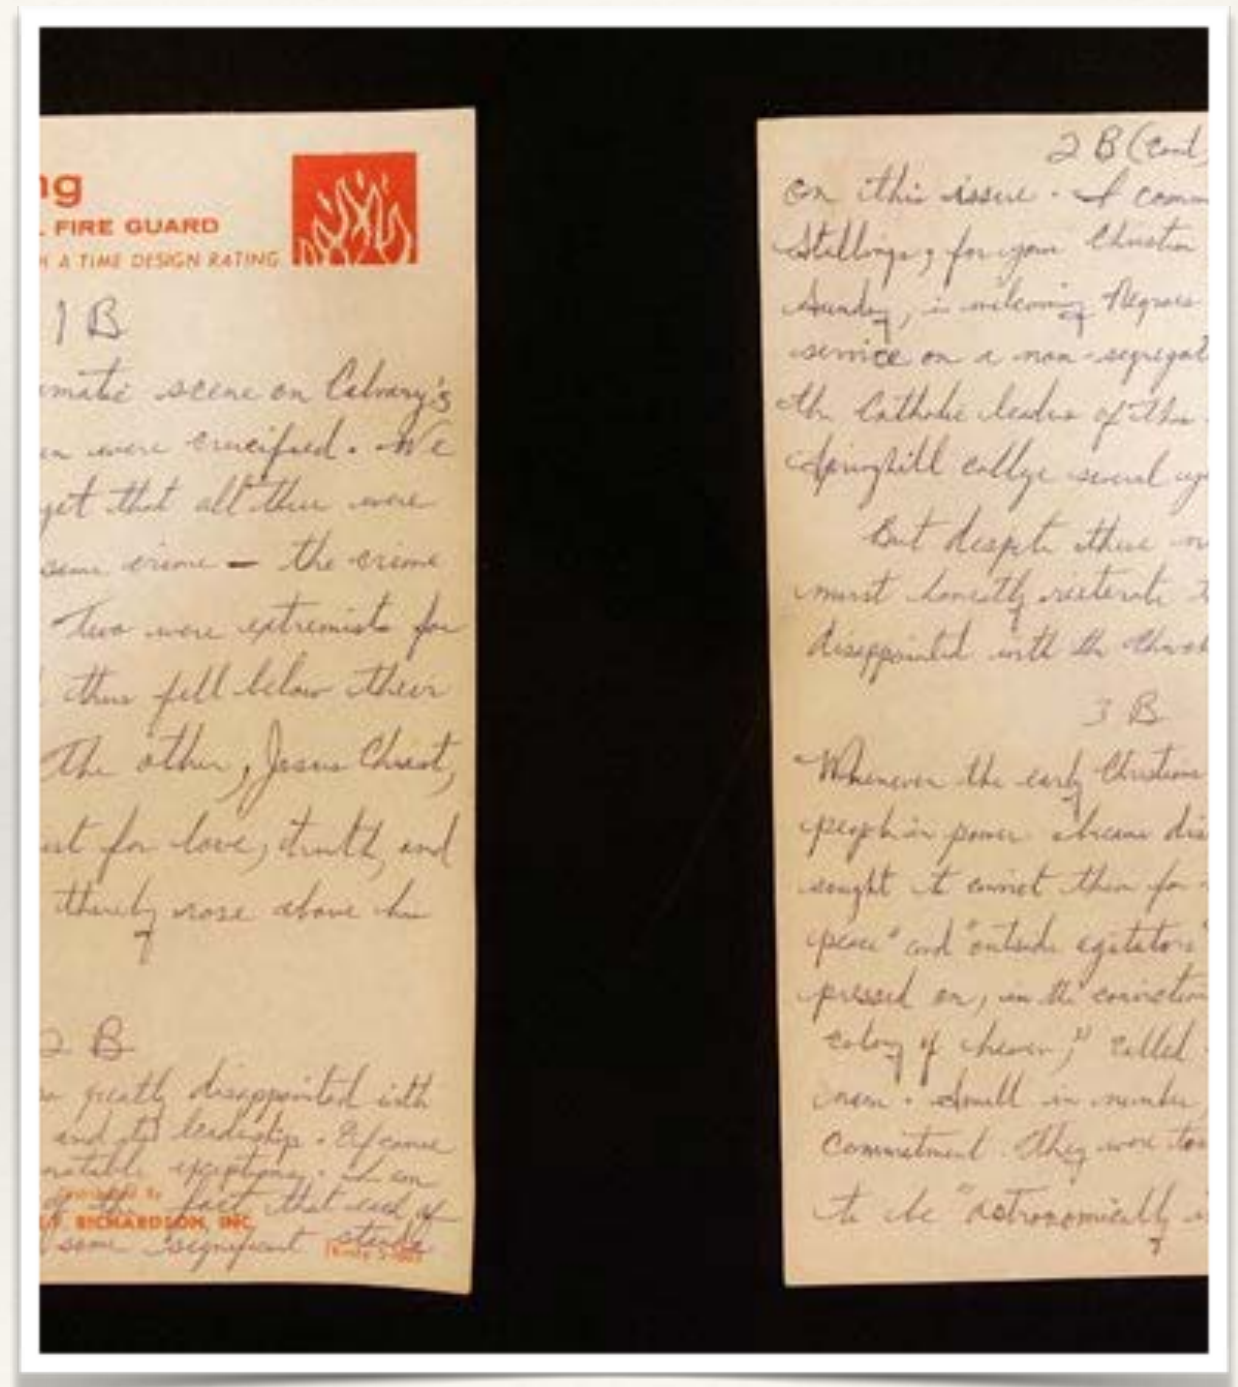 ng
FIRE GUARD
A TIME DESIGN RATING
1 B
matic scene on Calvary's
en were crucified. We
get that all three were
same crime — the crime
Two were extremists for
thus fell below their
The other, Jesus Christ,
ist for love, truth, and
thereby rose above his
2 B
so greatly disappointed with
and its leadership. Of course
notable exceptions. I am
of the fact that each of
RICHARDSON, INC.
some significant stands
2 B (cont
on this issue. I comm
Stallings, for your Christian
Sunday, in welcoming Negroes
service on a non-segregat
the Catholic leaders of this
Springhill college several
But despite these
must honestly reiterate
disappointed with the Church
3 B
Whenever the early Christians
people in power became dis
sought to convict them for
peace" and "outside agitators"
pressed on, in the conviction
colony of heaven," called
men. Small in number,
commitment. They were too
to be "astronomically i